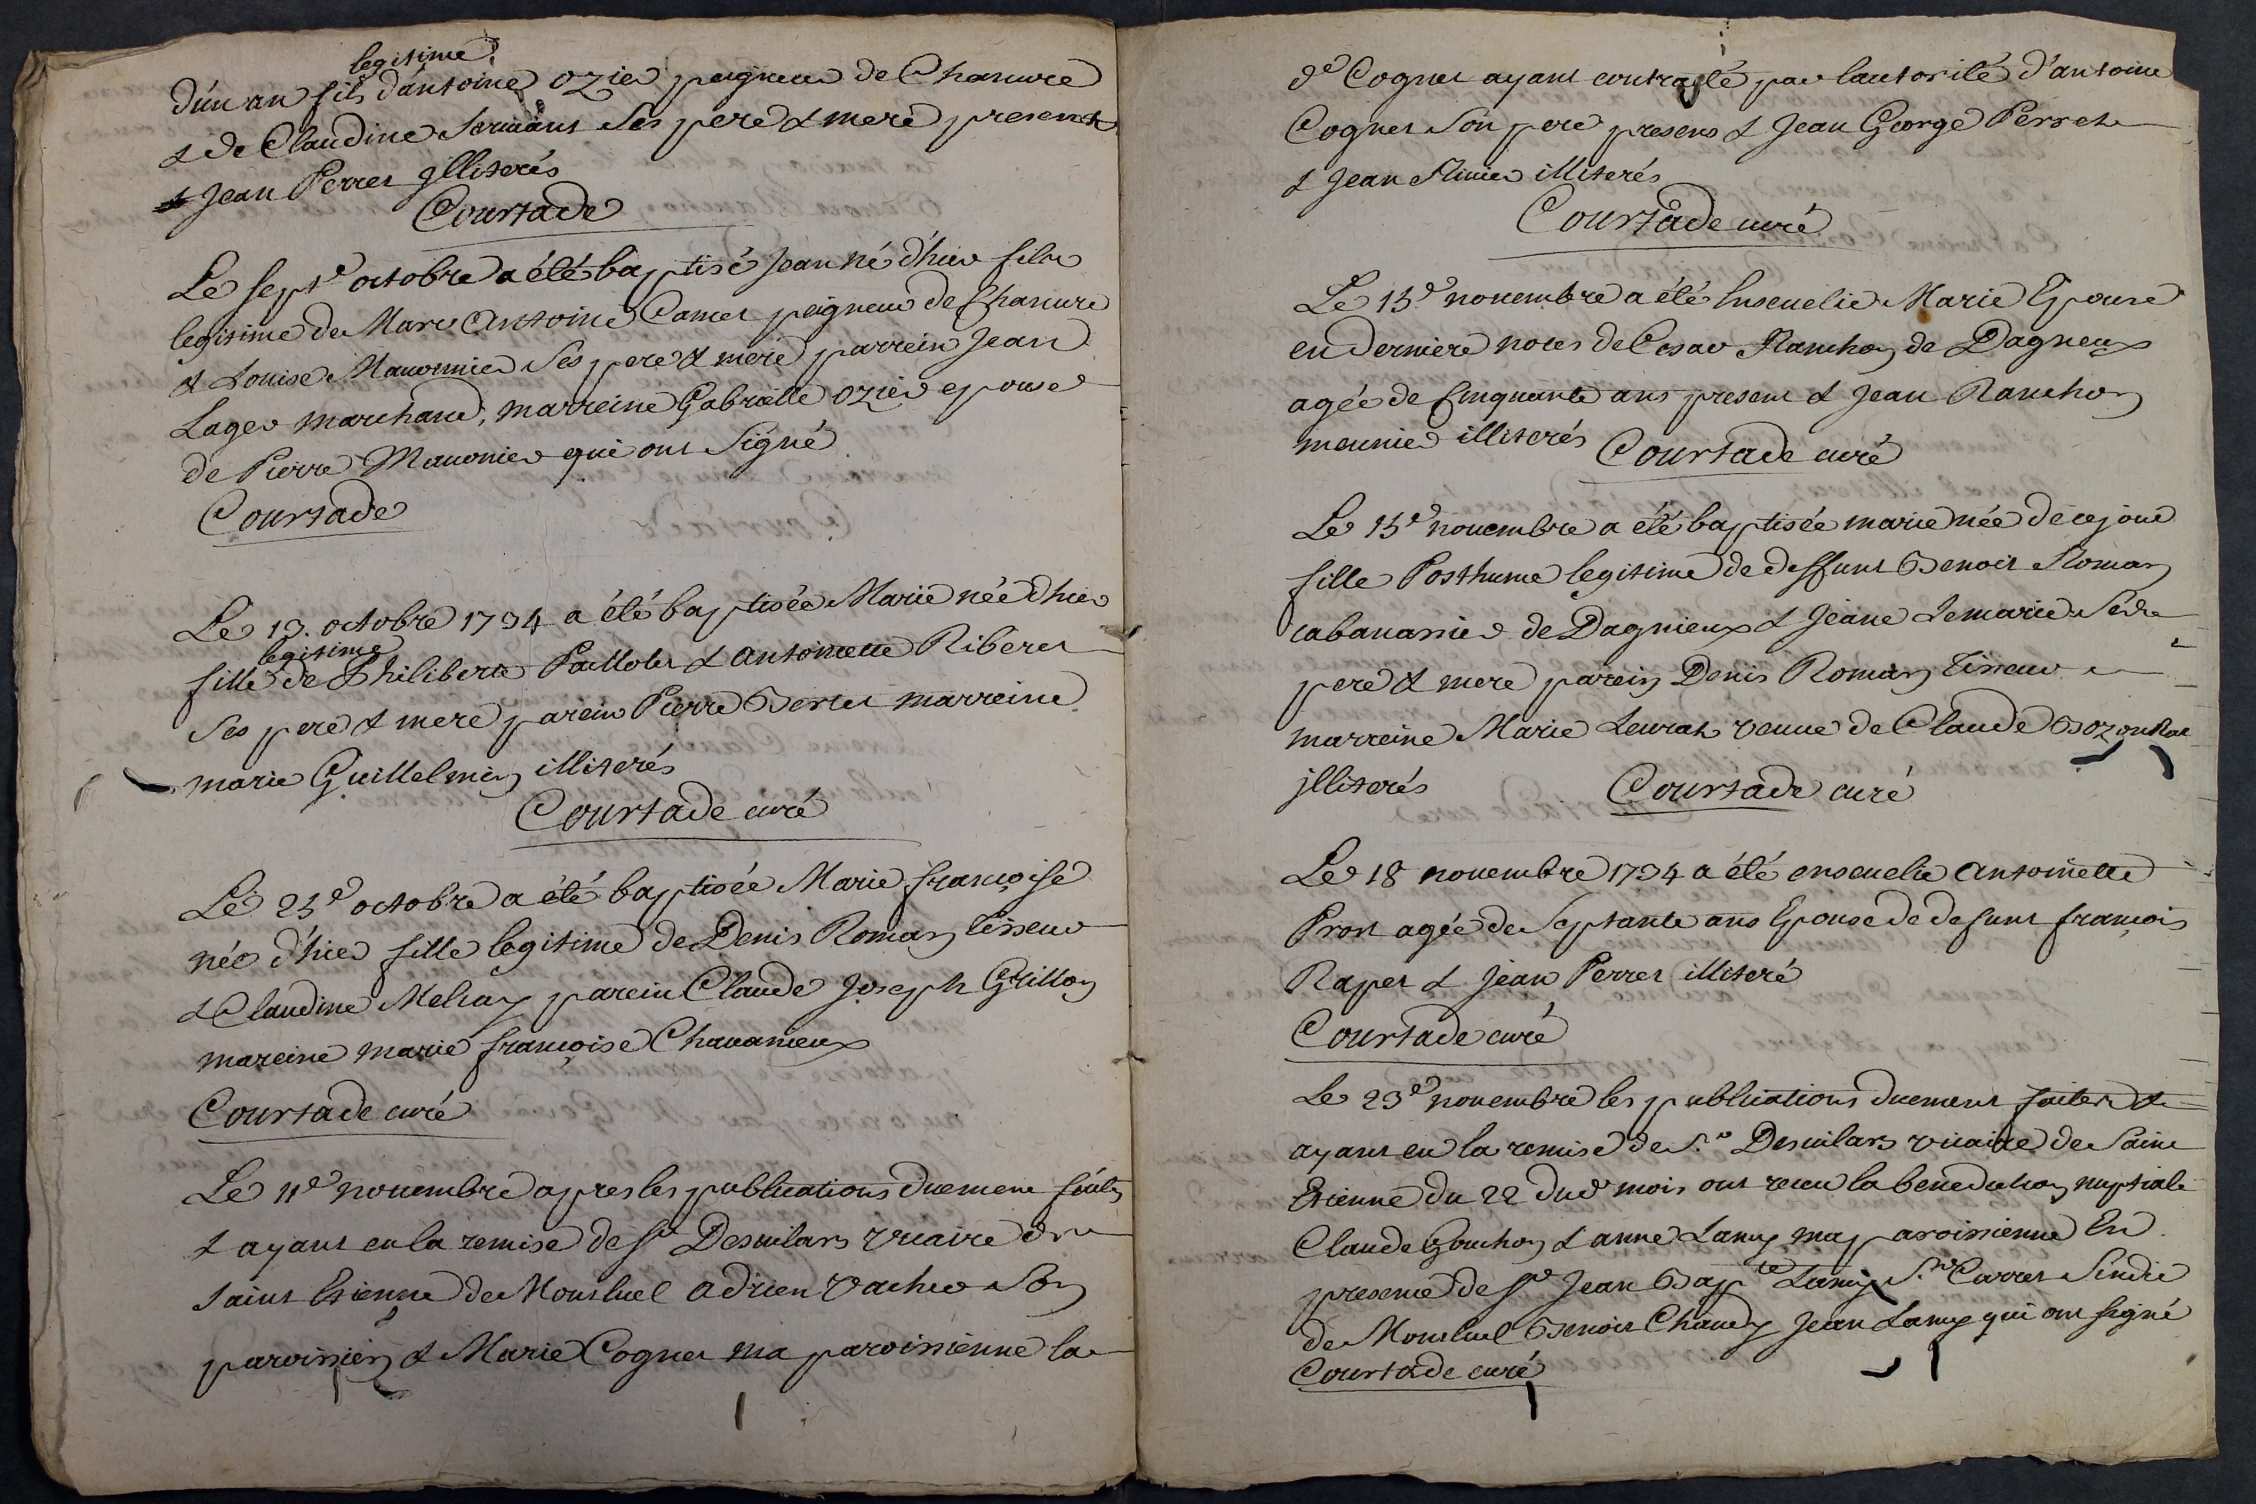 legitime
d'un an fils d'antoine ozier peigneur de Chanvre
& de Claudine Servant Ses pere & mere present
& Jean Perret jlliterés
Courtade
Le sept.e octobre a été baptisé Jean né d'hier fils
legitime de Marc Antoine Camet peigneur de Chanvre
& Louise Mauonnier Ses pere & mere parrein Jean
Lager marchand, marreine Gabrielle ozier epouse
de Pierre Mauonier qui ont Signé
Courtade
Le 13. octobre 1734 a été baptisée Marie née d'hier
legitime
fille de Philibert Paillolet & Antoinette Riberet
Ses pere & mere parein Pierre Bertet marreine
marie Guillelmin illiterés
Courtade curé
Le 25e octobre a été baptisée Marie françoise
née d'hier fille legitime de Denis Roman tisseur
& Claudine parein Claude Joseph Grillon
mareine marie françoise Chavanieux
Courtade curé
Le 11e nouembre apres les publications duement faites
& ayant eu la remise de Sr Desvilars vicaire de
saint Etienne de Monluel Adrien Vacher Son
paroissien & Marie Cognet ma paroissienne la
de Cognet ayant contracté par lautorité d'antoine
Cognet Son pere presens & Jean George Perret
& Jean illiterés
Courtade curé
Le 15e nouembre a été Enseuelie Marie Epouse
en derniere noces de Cesar Ranchon de Dagneux
agée de Cinquante ans present & Jean Ranchon
meunier illiterés Courtade curé
Le 15e nouembre a été baptisée marie née de ce jour
fille Posthume legitime de deffunt Benoit Roman
cabanassier de Dagnieux & Jeane Lemarie Ses
pere & mere parein Denis Roman tisseur
marreine Marie Leurat veuue de Claude
jlliterés Courtade curé
Le 18 nouembre 1734 a été enseuelie Antoinette
Prost agée de Septante ans Epouse de defunt francois
Rapet & Jean Perret illiteré
Courtade curé
Le 23e nouembre les publications duement faites &
ayant eu la remise de S.r Desvilars vicaire de Saint
Etienne du 22 dud mois ont receu la benediction nuptiale
Claude Gonchon & anne Lamy ma paroissienne En
presence de Sr Jean Bapte Lamy S.r Carret Sindic
de Monluel Benoit Chanay Jean Lamy qui ont signé
Courtade curé